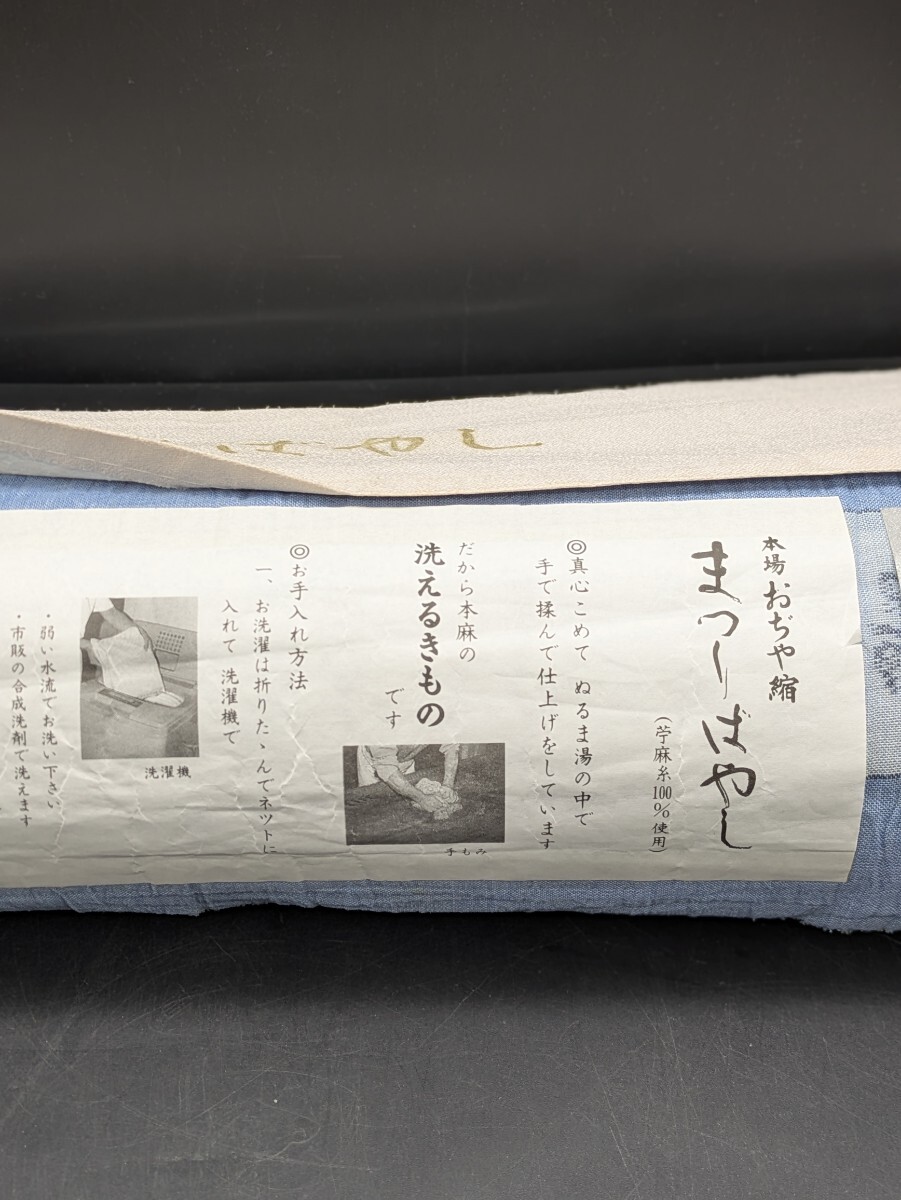 ばやし
本場おぢや縮
まつりばやし
(苧麻糸100%使用)
◎真心こめて ぬるま湯の中で
手で揉んで仕上げをしています
だから本麻の
洗えるきもの
です
手もみ
◎お手入れ方法
一、お洗濯は折りたゝんでネツトに
入れて 洗濯機で
洗濯機
・弱い水流でお洗い下さい
・市販の合成洗剤で洗えます